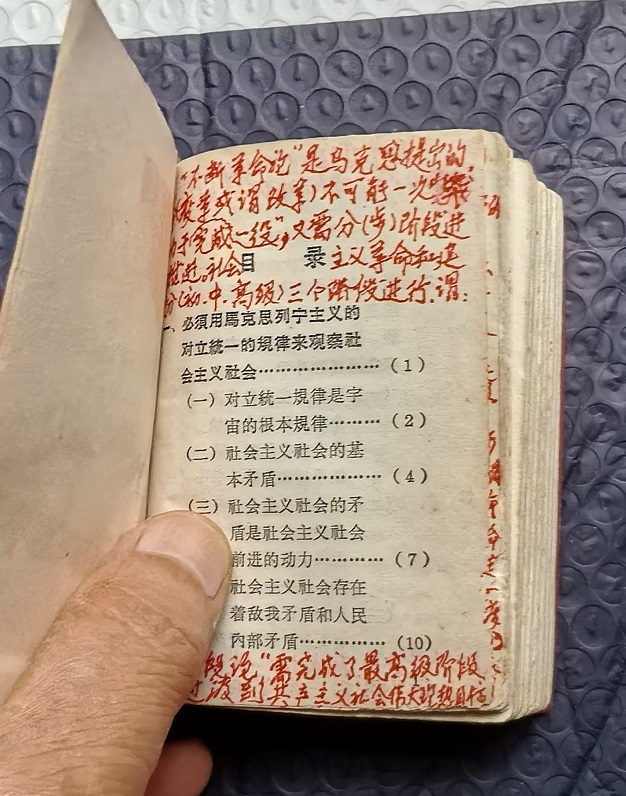 "不断革命论"是马克思提出的,
变革或谓改革)不可能一次
完成一役",又需分(步)阶段进
社会主义革命和建
分(初.中.高级)三个阶段进行.谓:
目 录
一、必須用馬克思列宁主义的
对立統一的規律来观察社
会主义社会…………………(1)
(一) 对立統一規律是宇
宙的根本規律………(2)
(二) 社会主义社会的基
本矛盾………………(4)
(三) 社会主义社会的矛
盾是社会主义社会
前进的动力…………(7)
社会主义社会存在
着敌我矛盾和人民
內部矛盾……………(10)
段论"需完成了最高级阶段
到共产主义社会伟大